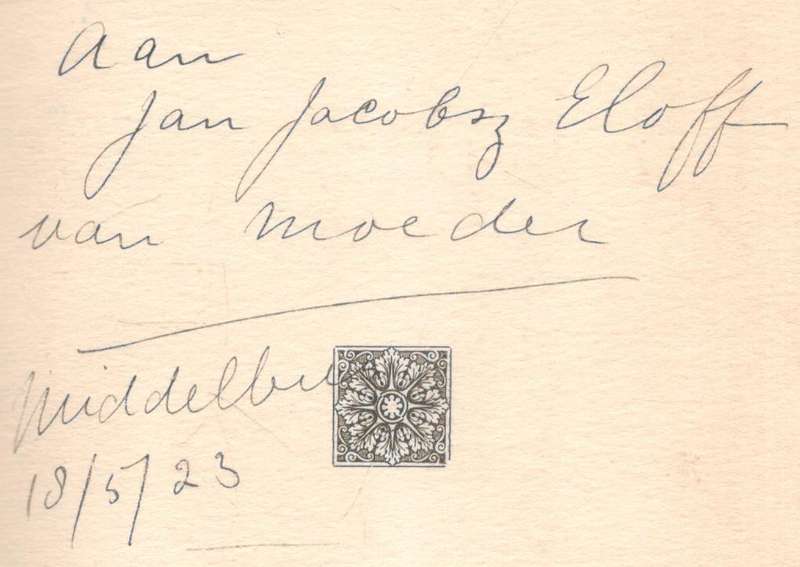 Aan
Jan Jacobsz Eloff
van moeder
Middelbu
18/5/23